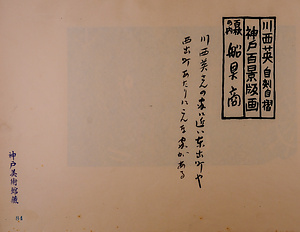 川西英 自刻自摺
神戸百景版画
百景の内 船具商
川西英さんの家に近い東出町や
西出町あたりにはこんな家がある
神戸美術館蔵